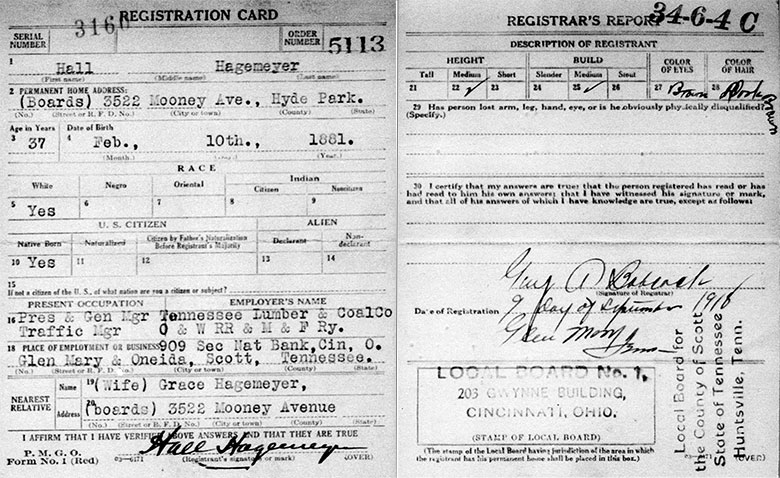 REGISTRATION CARD
SERIAL NUMBER 3160 ORDER NUMBER 5113
1 Hall Hagemeyer
(First name) (Middle name) (Last name)
2 PERMANENT HOME ADDRESS:
(Boards) 3522 Mooney Ave., Hyde Park.
(No.) (Street or R. F. D. No.) (City or town) (County) (State)
Age in Years Date of Birth
3 37 4 Feb., 10th., 1881.
(Month.) (Year.)
RACE
White Negro Oriental Indian
Citizen Noncitizen
5 Yes 6 7 8 9
U. S. CITIZEN ALIEN
Native Born Naturalized Citizen by Father's Naturalization Before Registrant's Majority Declarant Non-declarant
10 Yes 11 12 13 14
15
If not a citizen of the U. S., of what nation are you a citizen or subject?
PRESENT OCCUPATION EMPLOYER'S NAME
16 Pres & Gen Mgr Tennessee Lumber & CoalCo
Traffic Mgr O & W RR & M & F Ry.
18 PLACE OF EMPLOYMENT OR BUSINESS 909 Sec Nat Bank,Cin, O.
Glen Mary & Oneida, Scott, Tennessee.
(No.) (Street or R. F. D. No.) (City or town) (County) (State)
NEAREST RELATIVE
Name 19 (Wife) Grace Hagemeyer,
Address 20 (boards) 3522 Mooney Avenue
(No.) (Street or R. F. D. No.) (City or town) (County) (State)
I AFFIRM THAT I HAVE VERIFIED ABOVE ANSWERS AND THAT THEY ARE TRUE
P. M. G. O.
Form No. 1 (Red) 03-6171 Hall Hagemeyer
(Registrant's signature or mark) (OVER)
REGISTRAR'S REPORT 34-6-4 C
DESCRIPTION OF REGISTRANT
HEIGHT BUILD COLOR OF EYES COLOR OF HAIR
Tall Medium Short Slender Medium Stout
21 22 ✓ 23 24 25 ✓ 26 27 Brown 28 Brown
29 Has person lost arm, leg, hand, eye, or is he obviously physically disqualified?
(Specify.)
30 I certify that my answers are true; that the person registered has read or has
had read to him his own answers; that I have witnessed his signature or mark,
and that all of his answers of which I have knowledge are true, except as follows:
(Signature of Registrar)
Date of Registration 9 day of September 1918
LOCAL BOARD No. 1,
203 GWYNNE BUILDING,
CINCINNATI, OHIO.
(STAMP OF LOCAL BOARD)
(The stamp of the Local Board having jurisdiction of the area in which
the registrant has his permanent home shall be placed in this box.)
(OVER)
Local Board for
the County of Scott,
State of Tennessee
Huntsville, Tenn.